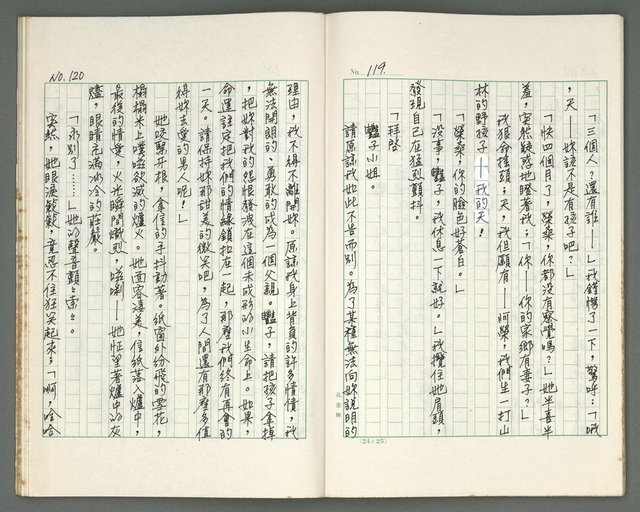 No. 119.
「三個人？還有誰——」我錯愕了一下，驚呼：「哦
，天——妳該不是有孩子吧？」
「快四個月了，榮桑，你都沒有察覺嗎？」她半喜半
羞，突然疑惑地瞪著我：「你——你的家鄉有妻子？」
我狠命搖頭：天，我但願有——阿榮，我們生一打山
林的野孩子——我的天！
「榮桑，你的臉色好蒼白。」
「沒事，豔子，我休息一下就好。」我攬住她肩頭，
發現自己在猛烈顫抖。
「拜啓
豔子小姐。
請原諒我如此不告而別。為了某種無法向妳說明的
(24×25)
NO. 120
理由，我不得不離開妳。原諒我身上背負的許多情債，我
無法開朗的、勇敢的成為一個父親。豔子，請把孩子拿掉
，把妳對我的怨恨發洩在這個未成形的小生命上。如果，
命運註定把我們的情緣鎖扣在一起，那麼我們終有再會的
一天。請保持妳那甜美的微笑吧，為了人間還有那麼多值
得妳去愛的男人呢！」
她咬緊牙根，拿信的手抖動著。紙窗外紛飛的雪花，
榻榻米上噗噗欲滅的爐火。她面容淒美，信紙落入爐中，
最後的情愛，火光瞬間熾烈，嗞唰——她怔望著爐中的灰
燼，眼睛充滿冰冷的莊嚴。
「永別了……」她的聲音顫々索々。
突然，她眼淚簌簌，竟忍不住狂笑起來：「啊，哈哈